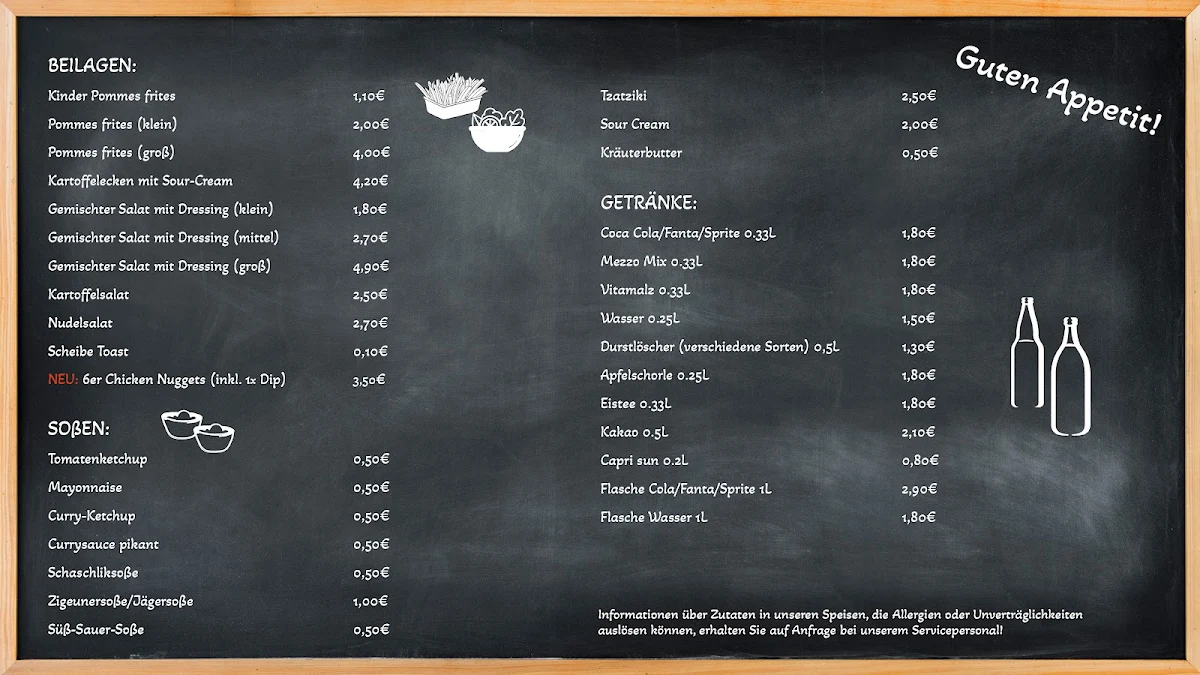 BEILAGEN:
Kinder Pommes frites 1,10€
Pommes frites (klein) 2,00€
Pommes frites (groß) 4,00€
Kartoffelecken mit Sour-Cream 4,20€
Gemischter Salat mit Dressing (klein) 1,80€
Gemischter Salat mit Dressing (mittel) 2,70€
Gemischter Salat mit Dressing (groß) 4,90€
Kartoffelsalat 2,50€
Nudelsalat 2,70€
Scheibe Toast 0,10€
NEU: 6er Chicken Nuggets (inkl. 1x Dip) 3,50€
SOßEN:
Tomatenketchup 0,50€
Mayonnaise 0,50€
Curry-Ketchup 0,50€
Currysauce pikant 0,50€
Schaschliksoße 0,50€
Zigeunersoße/Jägersoße 1,00€
Süß-Sauer-Soße 0,50€
Tzatziki 2,50€
Sour Cream 2,00€
Kräuterbutter 0,50€
GETRÄNKE:
Coca Cola/Fanta/Sprite 0.33L 1,80€
Mezzo Mix 0.33L 1,80€
Vitamalz 0.33L 1,80€
Wasser 0.25L 1,50€
Durstlöscher (verschiedene Sorten) 0,5L 1,30€
Apfelschorle 0.25L 1,80€
Eistee 0.33L 1,80€
Kakao 0.5L 2,10€
Capri sun 0.2L 0,80€
Flasche Cola/Fanta/Sprite 1L 2,90€
Flasche Wasser 1L 1,80€
Informationen über Zutaten in unseren Speisen, die Allergien oder Unverträglichkeiten
auslösen können, erhalten Sie auf Anfrage bei unserem Servicepersonal!
Guten Appetit!